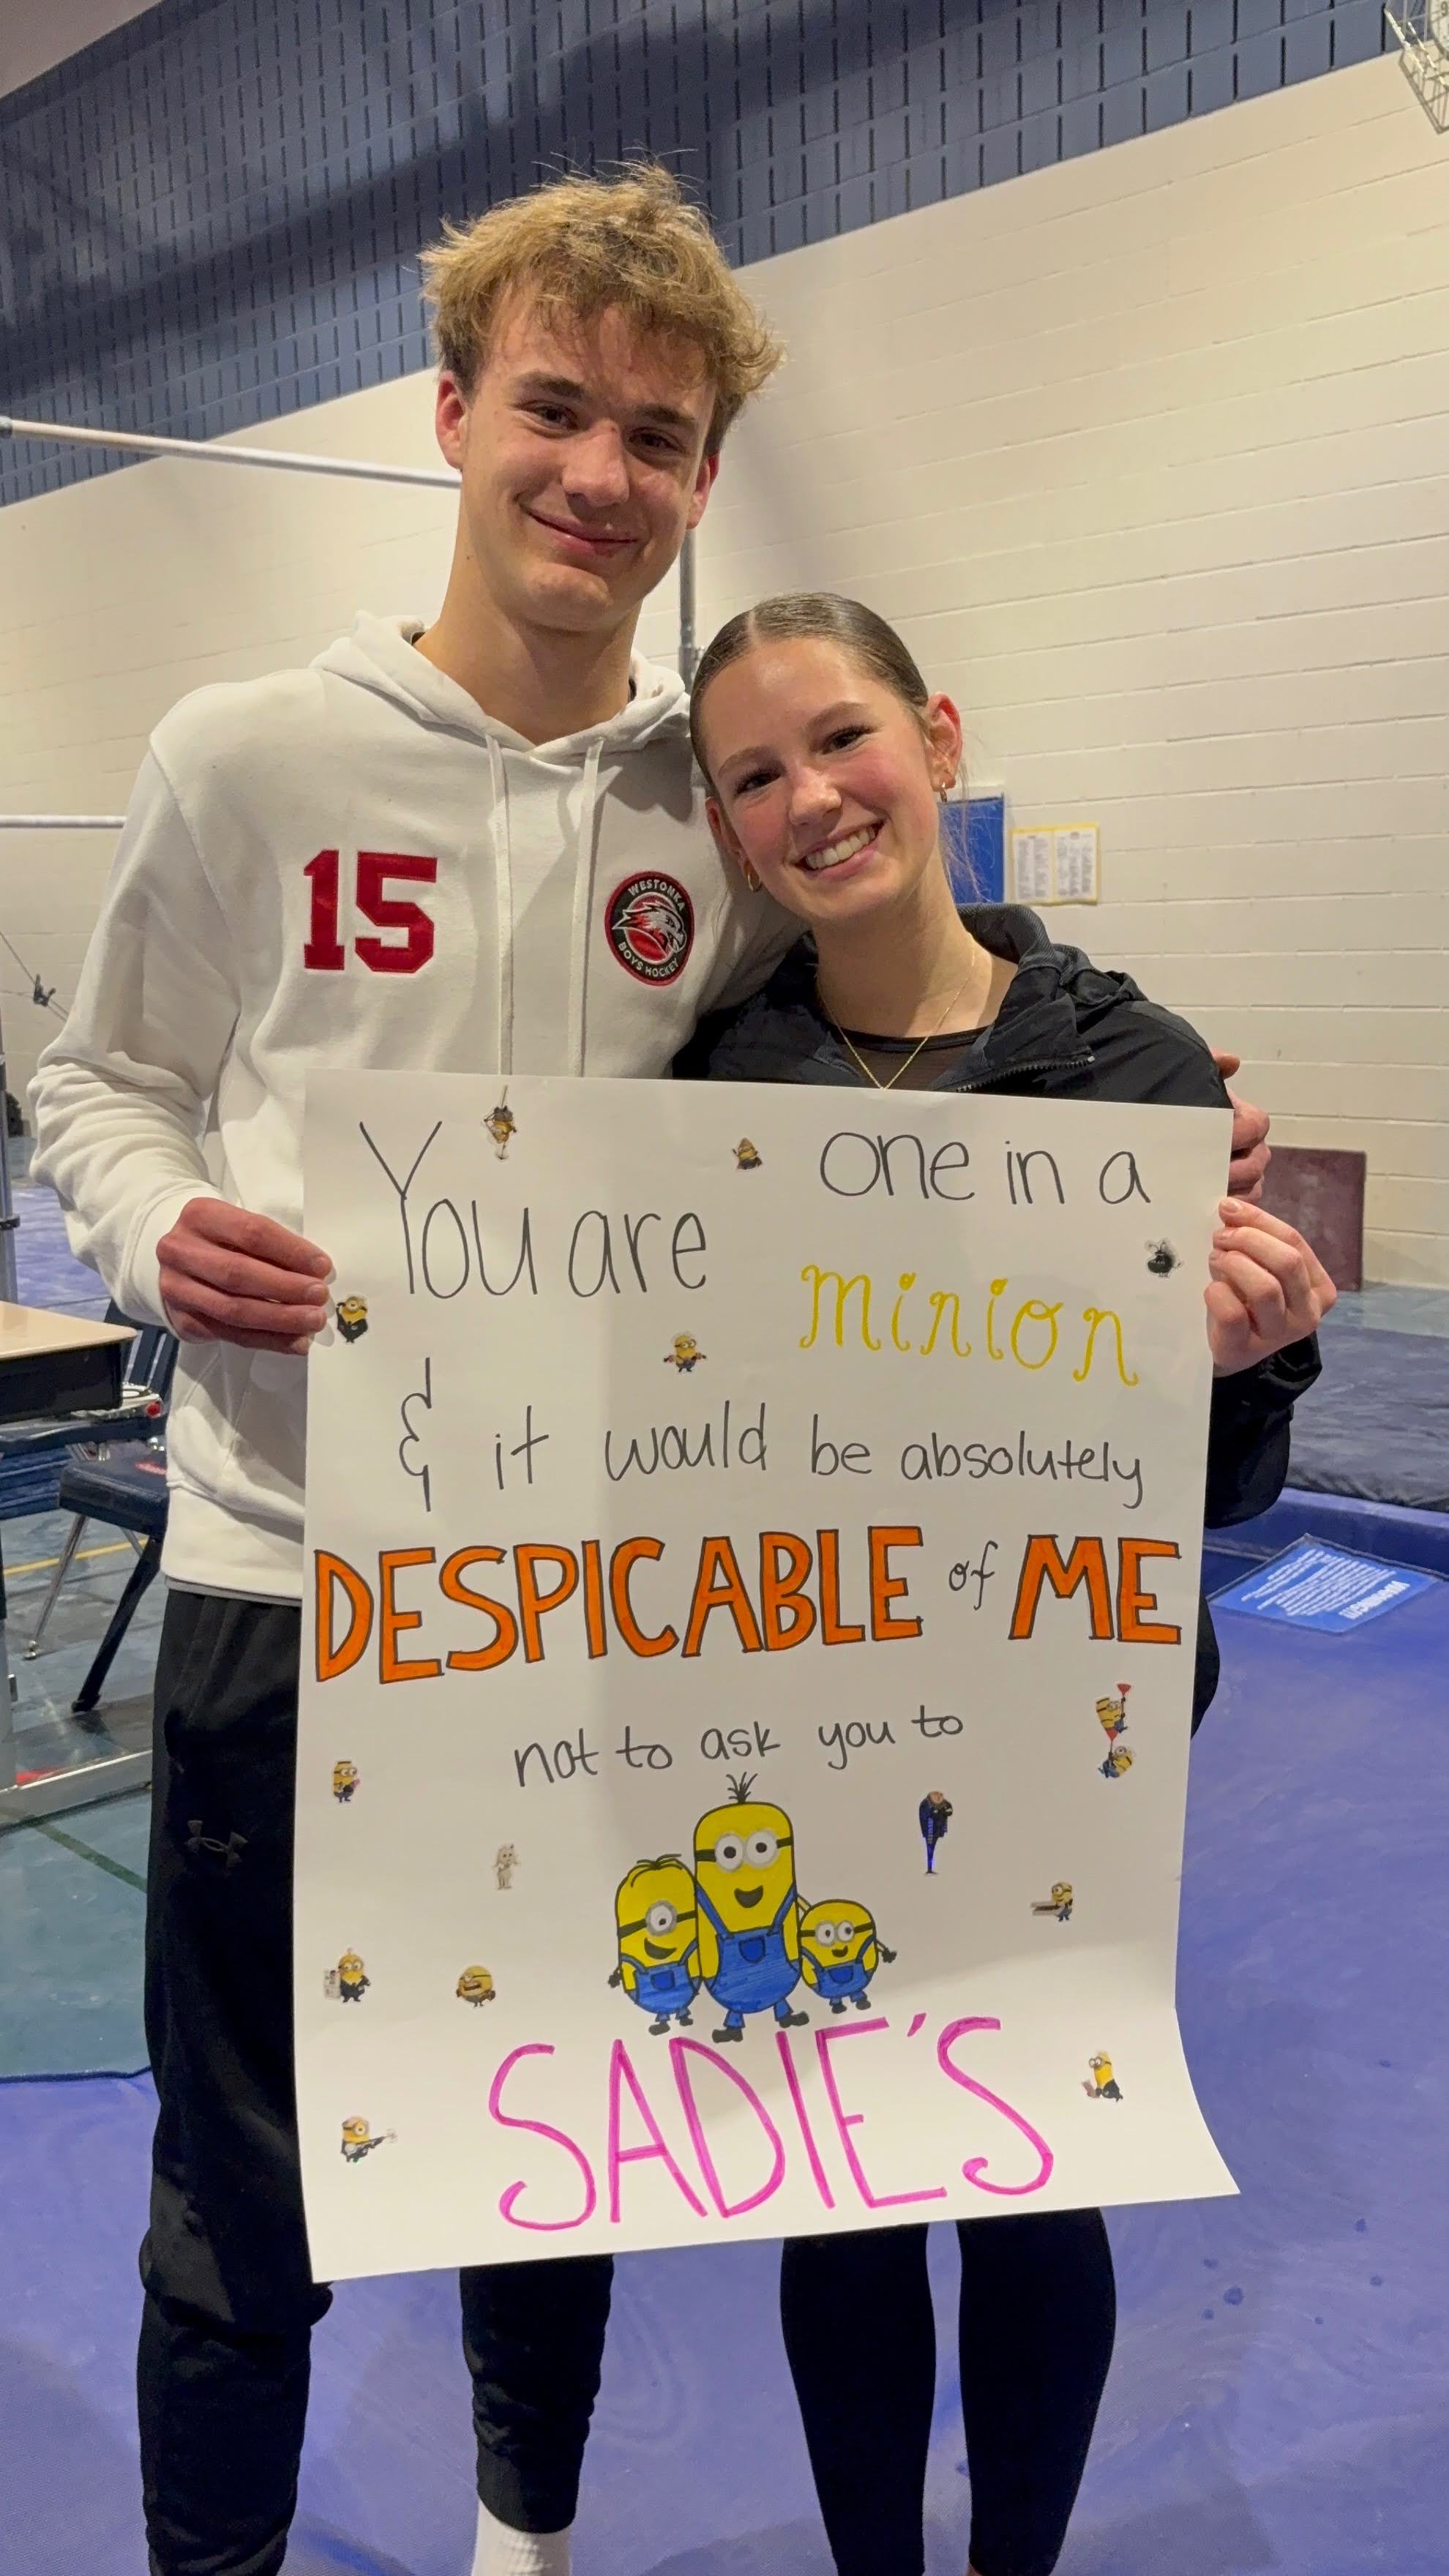 15
WESTONKA
BOYS HOCKEY
You are one in a
minion
& it would be absolutely
DESPICABLE of ME
not to ask you to
SADIE'S
WARNING!!!